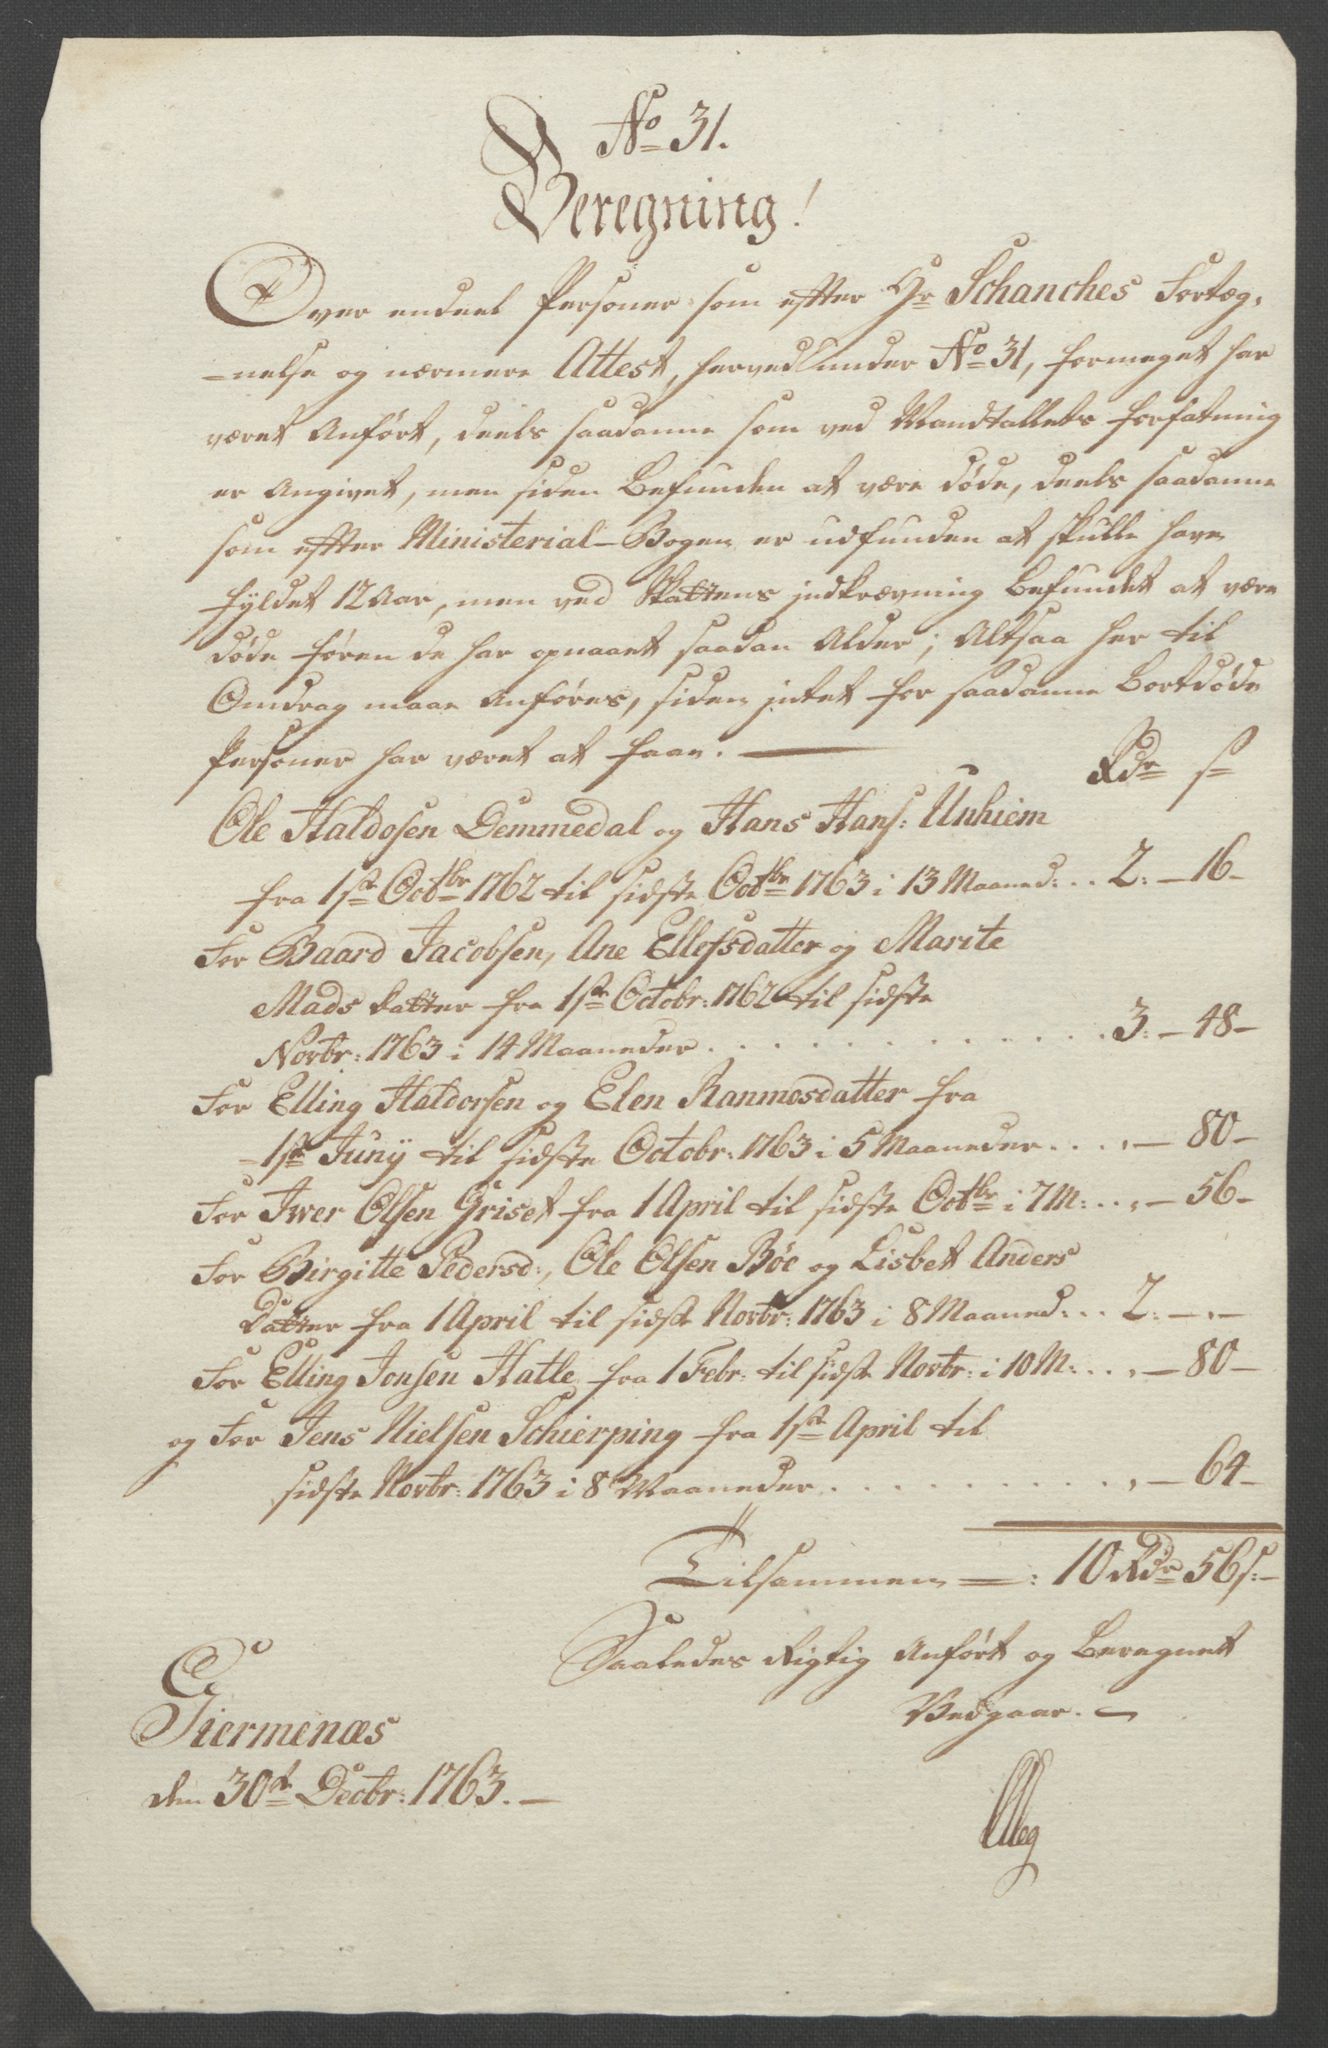 No 31.
Beregning!
Over endeel Personer som efter Hr Schanches Forteg¬
=nelse og nærmere Attest, herved under No 31, formeget har
været Anført, deels saadanne som ved Mandtallets Forfatning
er Angivet, men siden befunden at være døde, deels saadanne
som efter Ministerial-Bogen er udfunden at skulle have
fyldet 12 Aar, men ved Skattens indkrævning befundet at være
døde føren de har opnaaet saadan Alder; Altsaa her til
Omdrag maae Anføres, siden intet for saadanne bortdøde
Personer har været at faae. — Rdr s
Ole Haldosen Demmedal og Hans Hans: Unhiem
fra 1ste Octbr 1762 til sidste Octbr 1763 i 13 Maaned: . . 2: — 16 —
For Baard Jacobsen, Ane Ellefsdatter og Marite
Mads Datter fra 1ste Octobr: 1762 til sidste
Novbr: 1763 i 14 Maaneder . . . . . . . . . . . 3: — 48 —
For Elling Haldorsen og Elen Ranmosdatter fra
- 1ste Junij til sidste Octobr: 1763 i 5 Maaneder . . . , — 80 —
For Iwer Olsen Griset fra 1 April til sidste Octbr i 7 M: . . , — 56 —
For Birgitte Pedersd:, Ole Olsen Böe og Lisbet Anders
Datter fra 1 April til sidste Novbr: 1763 i 8 Maaned: . . 2: — , —
For Elling Jonsen Hatle fra 1 Febr: til sidste Novbr: i 10 M: . . , — 80 —
og For Jens Nielsen Schierping fra 1ste April til
sidste Novbr: 1763 i 8 Maaneder . . . . . . . . . . , — 64 —
Tilsammen = : 10 Rdr 56 s: —
Saaledes Rigtig Anført og Beregnet
Vedgaar. —
Giermenæs
den 30te Decbr: 1763. —